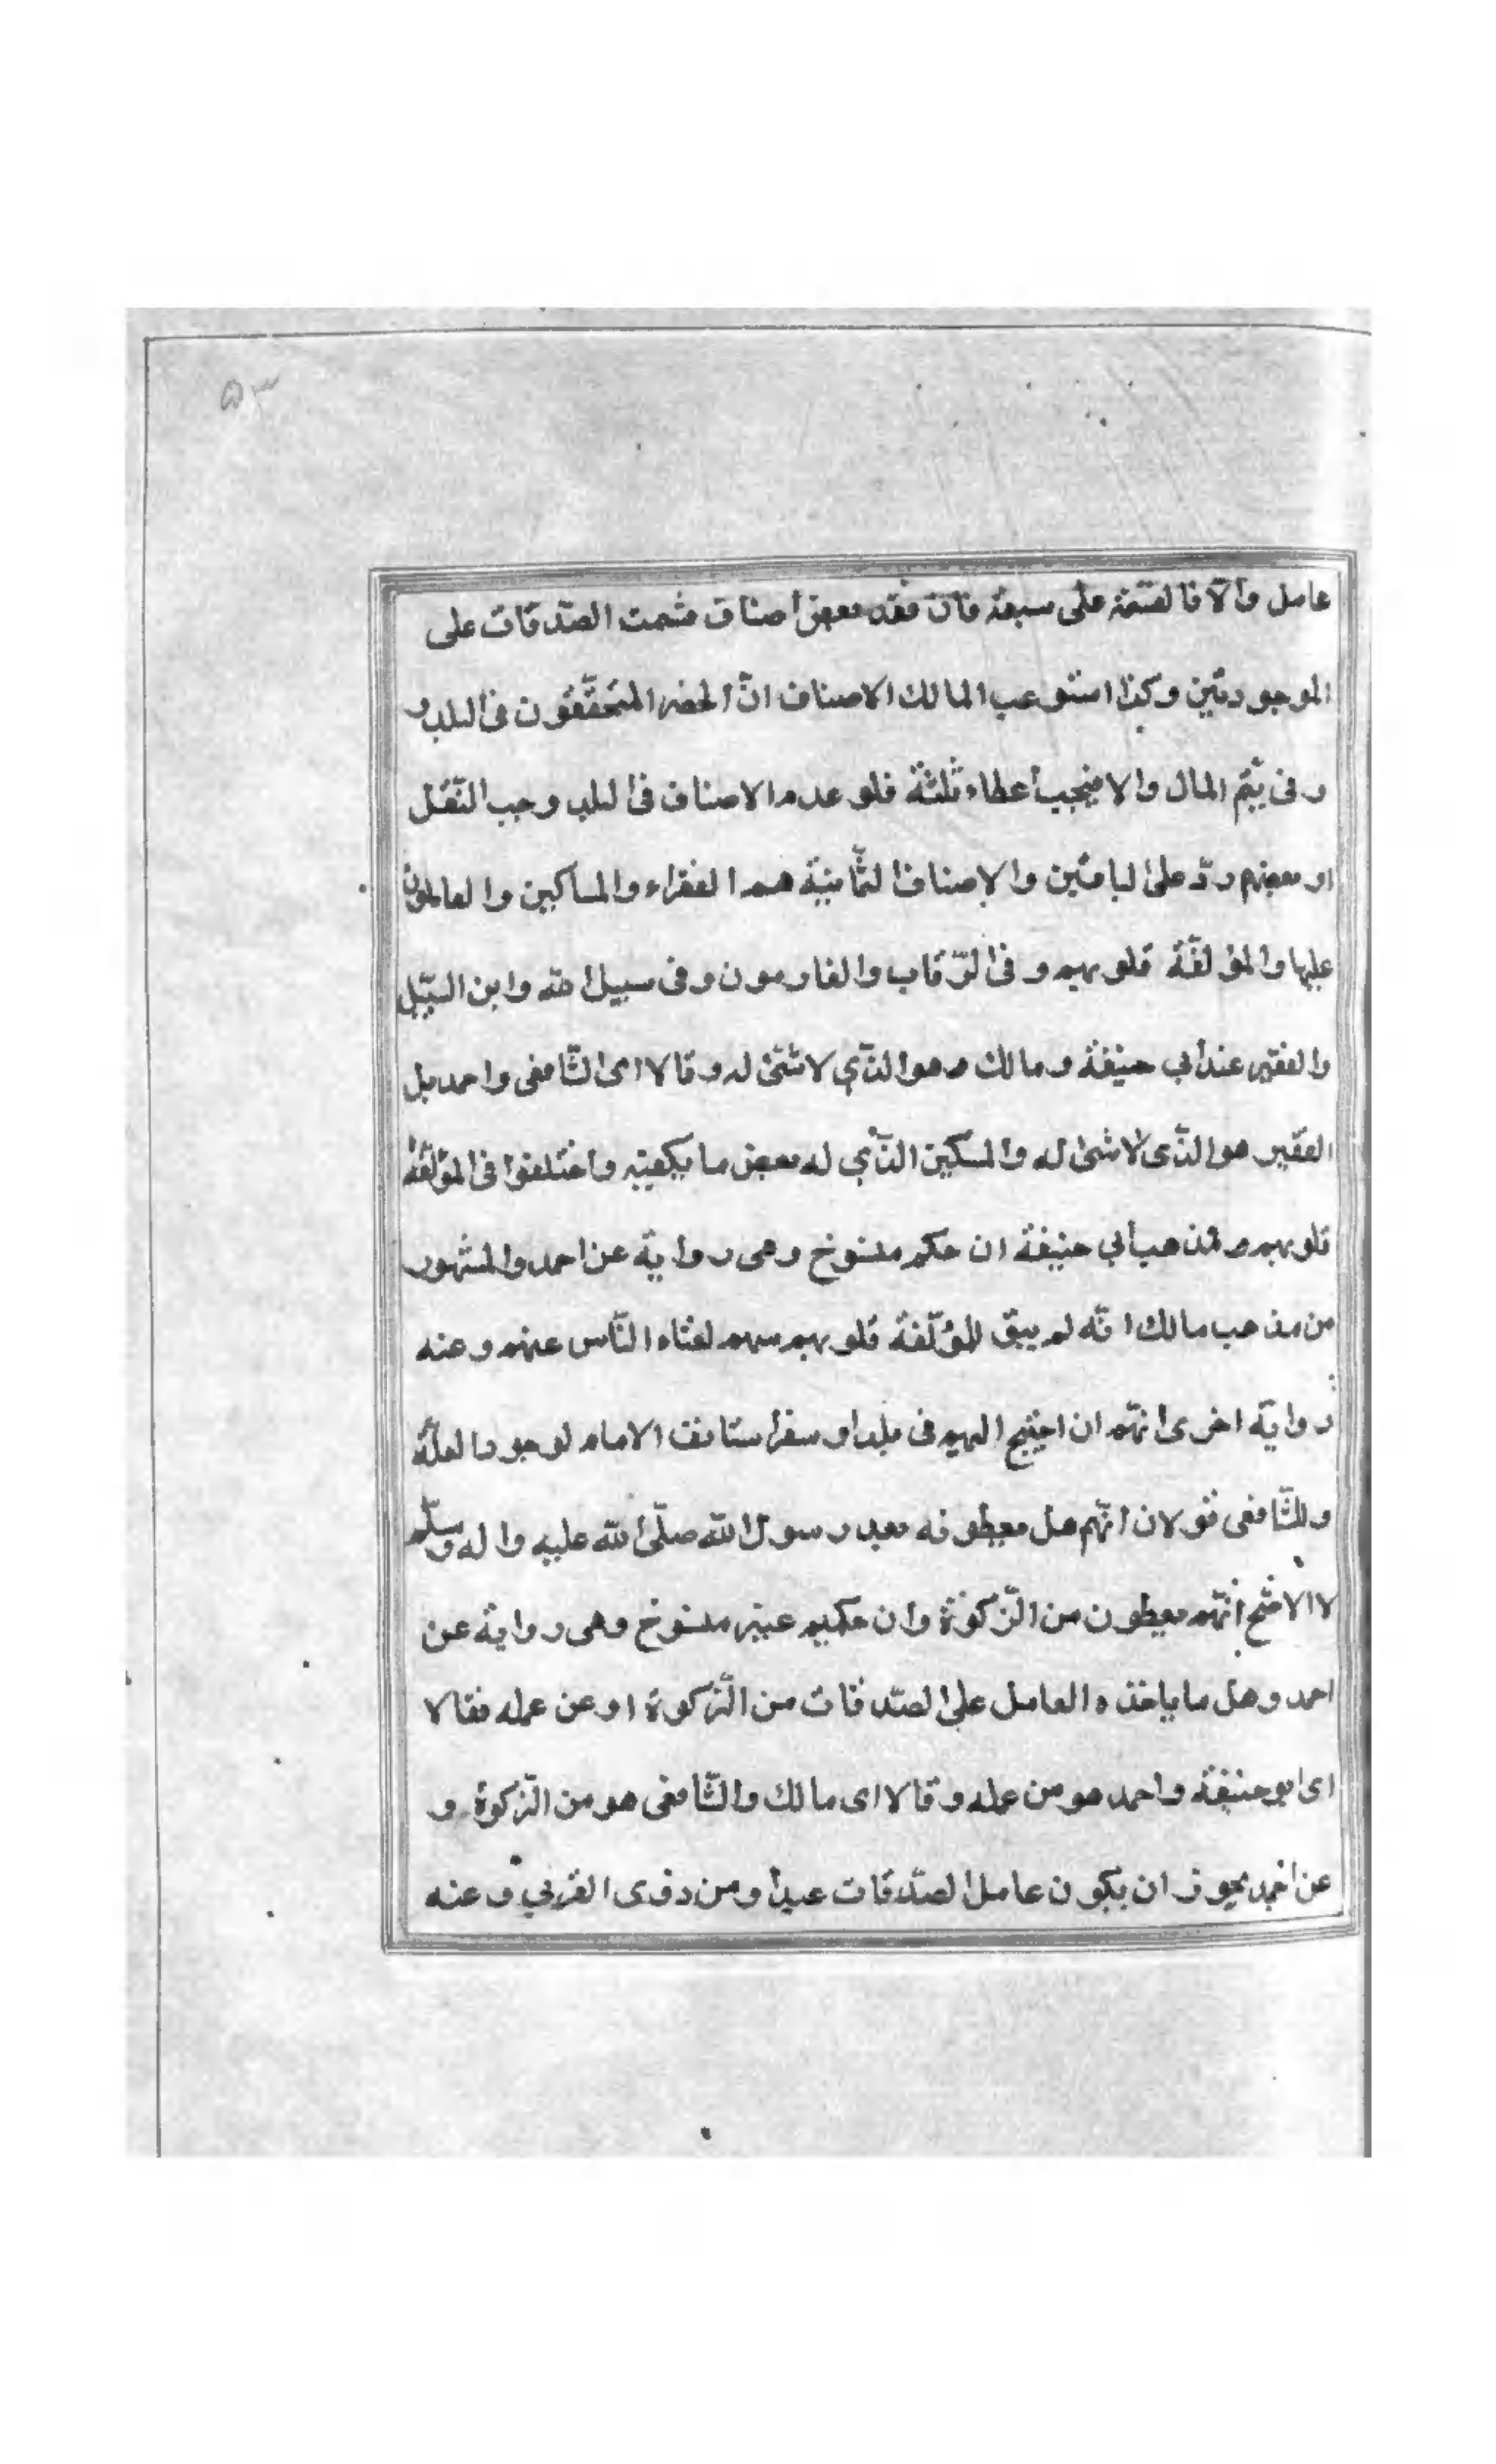 ٥٣
عامل والّا فالقسمة على سبعة فان فقد بعض أصناف قسمت الصّدقات على
الموجودين وكذا استوعب المالك الاصناف انّ الحصر المستحقّون فى البلد و
وفى بهم المال والا فيجب أعطاء ثلثة فلو عدم الاصناف فى البلد وجب النّقل
او بعضهم ردّ على الباقين والاصناف الثّمانية هم الفقراء والمساكين والعاملون
عليها والمؤلّفة قلوبهم وفى الرّقاب والغارمون وفى سبيل الله وابن السّبيل
والفقير عند أبي حنيفة ومالك هو الّذي لا شئ له وقالا اى الشّافعى واحمد بل
الفقير هو الّذى لا شئ له والمسكين الّذي له بعض ما يكفيه واختلفوا فى المؤلّفة
قلوبهم فمذهب أبي حنيفة ان حكم منسوخ وهى رواية عن احمد والمشهور
من مذهب مالك انّه لم يبق للمؤلّفة قلوبهم سهم لغناء النّاس عنهم وعنه
رواية اخرى أنّهم ان احتيج اليهم فى بلد او سفر استانف الامام لوجود العلّة
وللشّافعى قولان انّهم هل يعطونه بعد رسول الله صلّى الله عليه واله وسلّم
لا الاصّح أنّهم يعطون من الزّكوة وان حكمهم غير منسوخ وهى رواية عن
احمد وهل ما ياخذه العامل على الصّدقات من الزّكوة او عن عمله فقالا
اى ابو حنيفة واحمد هو من عمله وقالا اى مالك والشّافعى هو من الزّكوة و
عن احمد يجوز ان يكون عامل الصّدقات عبدا ومن ذوى القربي وعنه